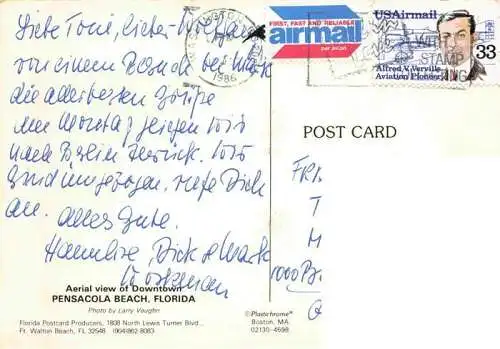 Liebe Toni, lieber Wolfgang
von einem Besuch bei Mark
die allerbesten Grüße
Am Montag fliegen wir
nach Berlin zurück. Wir
sind umgezogen. rufe Dich
an. Alles Gute.
Hannelore, Dick & Mark
Aerial view of Downtown
PENSACOLA BEACH, FLORIDA
Photo by Larry Vaughn
Florida Postcard Producers, 1808 North Lewis Turner Blvd.,
Ft. Walton Beach, FL 32548 (904)862-8083
FIRST, FAST AND RELIABLE
airmail
par avion
1986
USAirmail
33
Alfred V. Verville
Aviation Pioneer
WITH
STAMP
POST CARD
©Plastichrome®
Boston, MA
02130-4698